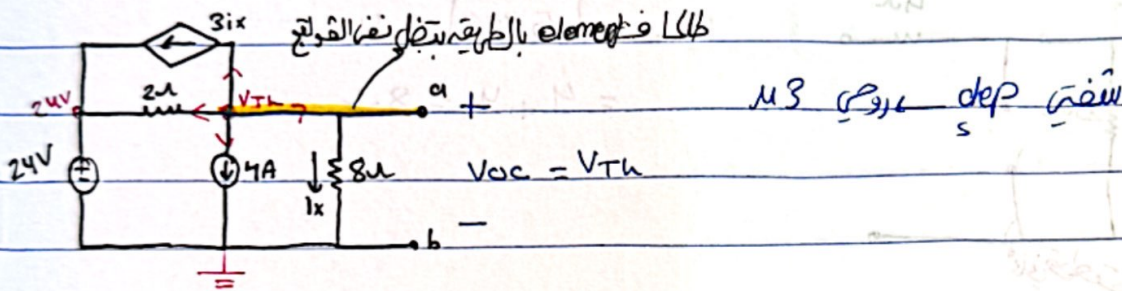 3ix
طالما في element بالطريقه بتضل نفس الفولتج
2Ω
24V
VTh
a
+
شفتي dep s عروحي
24V
4A
8Ω
Ix
Voc = VTh
−
b